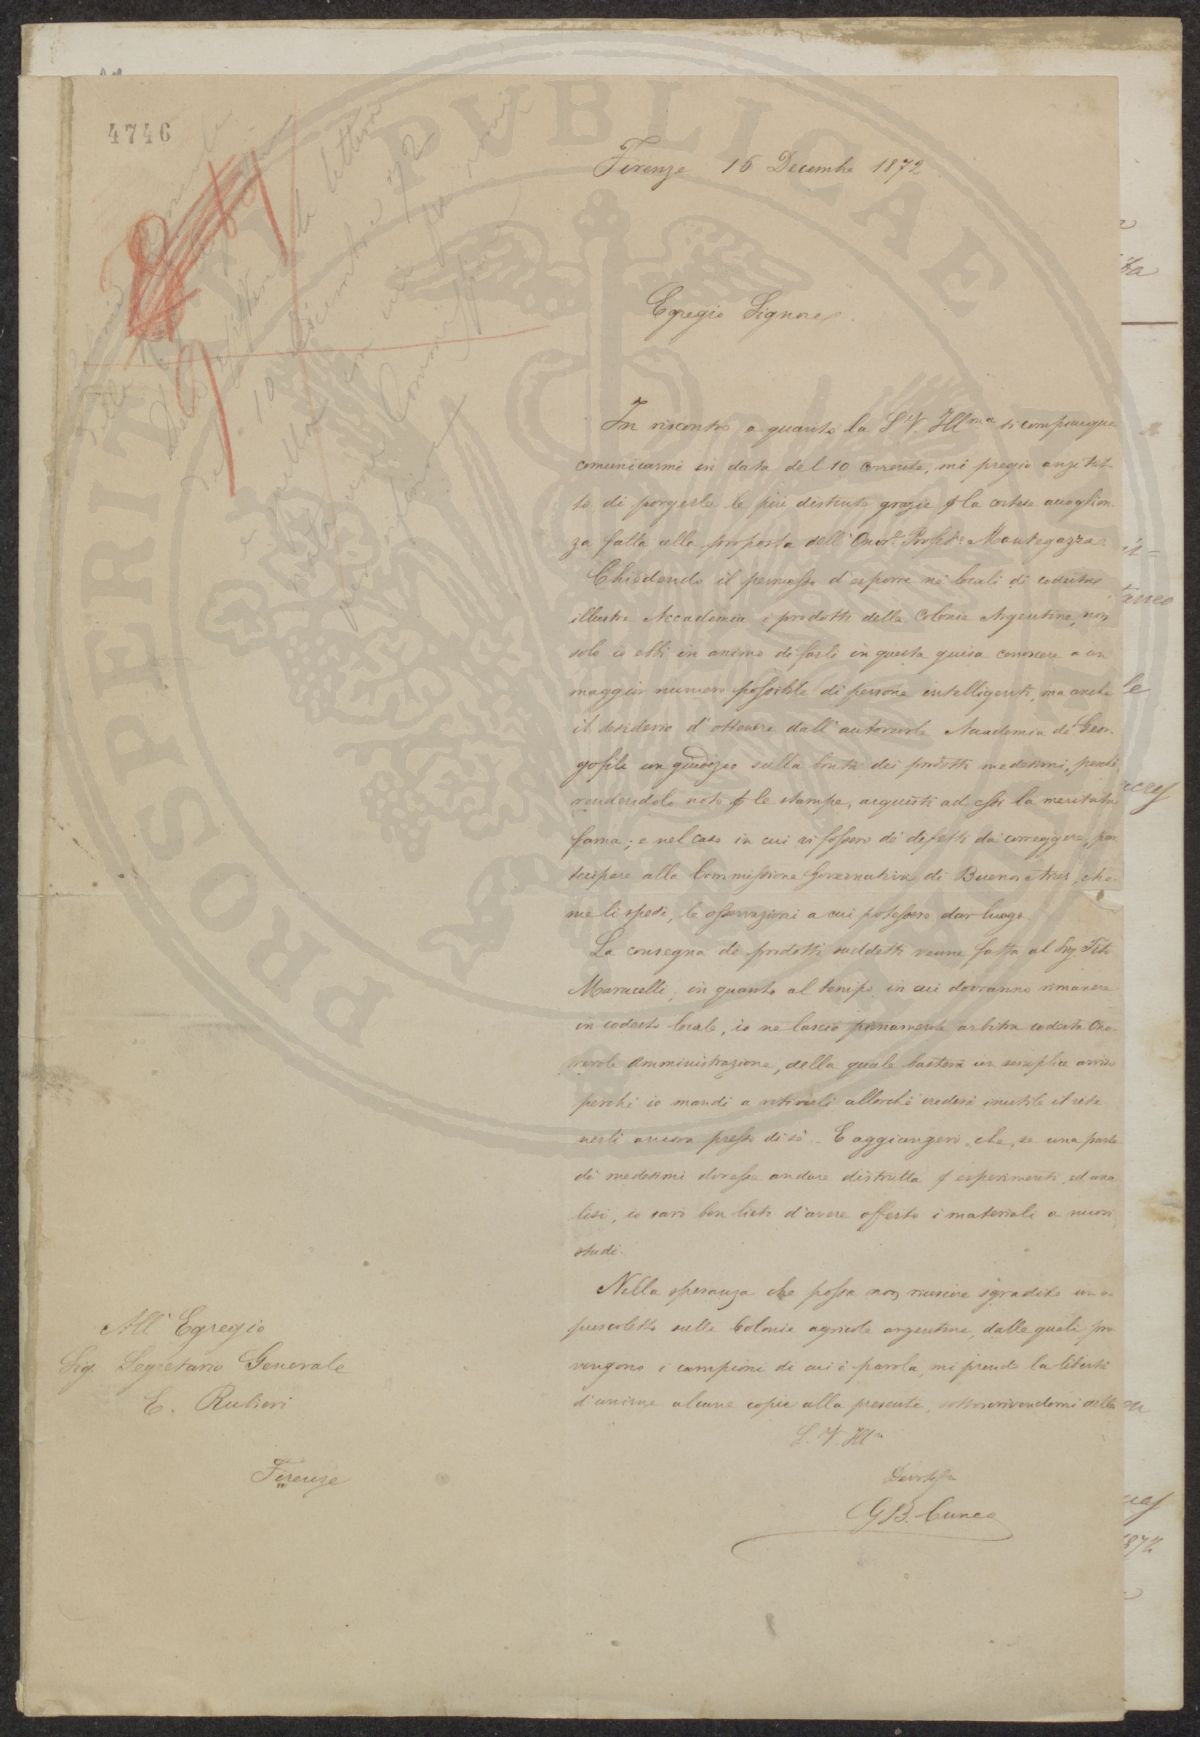 4746
Firenze 16 Decembre 1872
Egregio Signore.
In riscontro a quanto la S.V. Ill.ma si compiacque
comunicarmi in data del 10 corrente, mi pregio anzitut-
to di porgerle le più distinte grazie p la cortese accoglien-
za fatta alla proposta dell' Onor.e Profess.e Mantegazza.
Chiedendo il permesso d'esporre nè locali di codesta
illustre Accademia i prodotti delle Colonie Argentine, non
solo io ebbi in animo di farli in questa guisa conoscere a un
maggior numero possibile di persone intelligenti, ma anche
il desiderio d'ottenere dall' autorevole Accademia dè Geor-
gofili un giudizio sulla bontà dei prodotti medesimi, perchè
rendendolo noto p le stampe, acquisti ad essi la meritata
fama; e nel caso in cui vi fossero dè difetti da correggere, par
tecipare alla Commissione Governativa di Buenos Aires, che
me li spedì, le osservazioni a cui potessero dar luogo.
La consegna dè prodotti suddetti venne fatta al Sig. Tito
Marucelli; in quanto al tempo in cui dovranno rimanere
in codesto locale, io ne lascio pienamente arbitra codesta Ono-
revole Amministrazione, della quale basterà un semplice avviso
perchè io mandi a ritirarli allorchè crederà inutile il rite
nerli ancora presso di sè. E aggiungerò che, se una parte
dè medesimi dovesse andare distrutta p esperimenti ed ana
lisi, io sarò ben lieto d'avere offerto i materiali a nuovi
studi.
Nella speranza che possa non riuscire sgradito un o-
puscoletto sulle Colonie agricole argentine, dalle quali pro
vengono i campioni di cui è parola, mi prendo la libertà
d'unirne alcune copie alla presente, sottoscrivendomi della
S. V. Ill.ma
Devotiss.
G.B. Cuneo
All' Egregio
Sig. Segretario Generale
E. Rubieri
Firenze
PROSPERITATI PVBLICAE